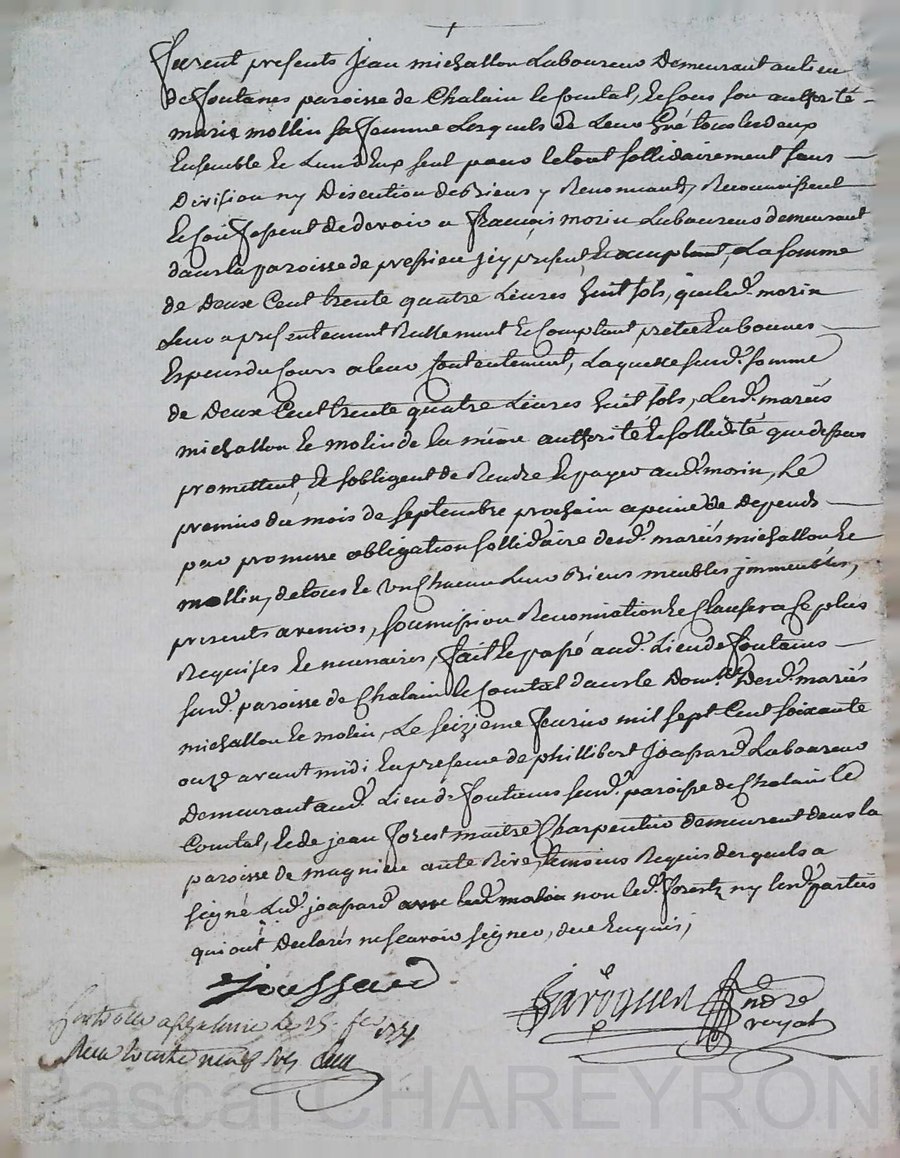 furent presents jean michallon Laboureur Demeurant au lieu
de fontanes paroisse de Chalain le Comtal, et sous son authorité
marie mollin sa femme Lesquels de Leur Gré tous les deux
Ensemble et L'un d'Eux seul pour le tout sollidairement sans
Division ny Discution de Biens y Renonceant, Reconnoissent
et Confessent de devoir a francois morin Laboureur demeurant
dans la paroisse de present et acceptant, La somme
de Deux Cent trente quatre Livres huit sols, que led. morin
Leur a presentement Reellement et Comptant pretée En bonnes
Especes du Cours a leur Contentement, Laquelle susd. somme
de Deux Cent trente quatre Livres huit sols, Lesd. mariés
michallon et molin de la même authorité et sollidité que dessus
promettent et s'obligent de Rendre et payer aud. morin, Le
premier du mois de septembre prochain a peine de Depends
par promesse obligation sollidaire desd. mariés michallon et
mollin, de tous et Un Chacun Leur Biens meubles jmmeubles,
presents avenir, soumission Renonciation et Clauses a Ce plus
Requises et necessaires, fait et passé aud. Lieu de fontanes
susd. paroisse de Chalain le Comtal dans le Domlle. Desd. mariés
michallon et molin, Le seizieme feuvrier mil sept Cent soixante
onze avant midi En presence de phillibert Joapard Laboureur
Demeurant aud. Lieu de fontanes susd. paroisse de Chalain le
Comtal, et de jean forest maitre Charpentier demeurent dans la
paroisse de magnieu aute Rive, temoins Requis desquels a
signé Led. joapard non led. forest ny lesd. parties
qui ont Declarés ne scavoir signer, de ce Enquis,
Joassard
André
royal
le 25 fer 1771
Reçu trente neuf sols
Pascal CHAREYRON